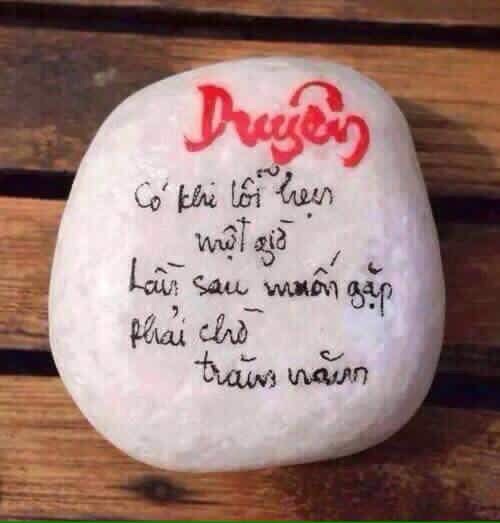 Duyên
Có khi lỗi hẹn
một giờ
Lần sau muốn gặp
phải chờ
trăm năm